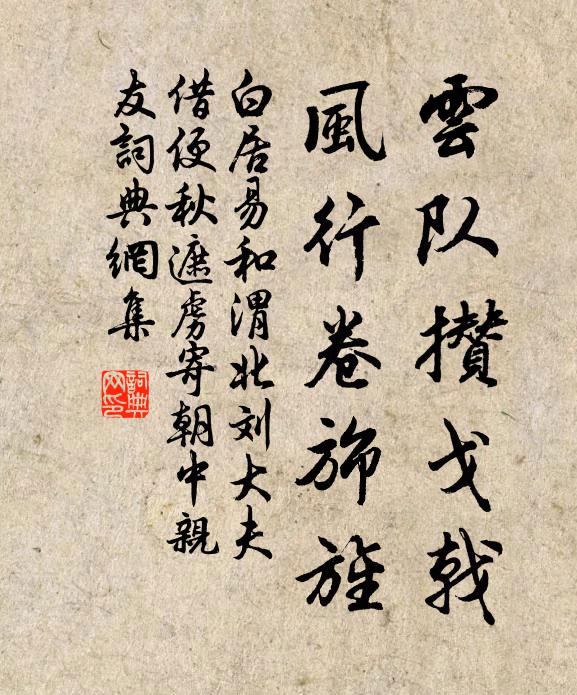 雲队攢戈戟
風行卷斾旌
白居易和渭北刘大夫
借便秋遮虜寄朝中親
友詞典網集
詞典
网印